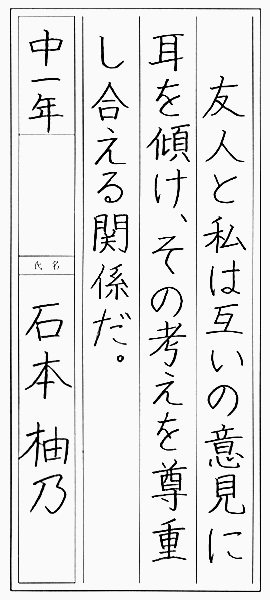 友人と私は互いの意見に
耳を傾け、その考えを尊重
し合える関係だ。
中一年
氏名
石本 柚乃